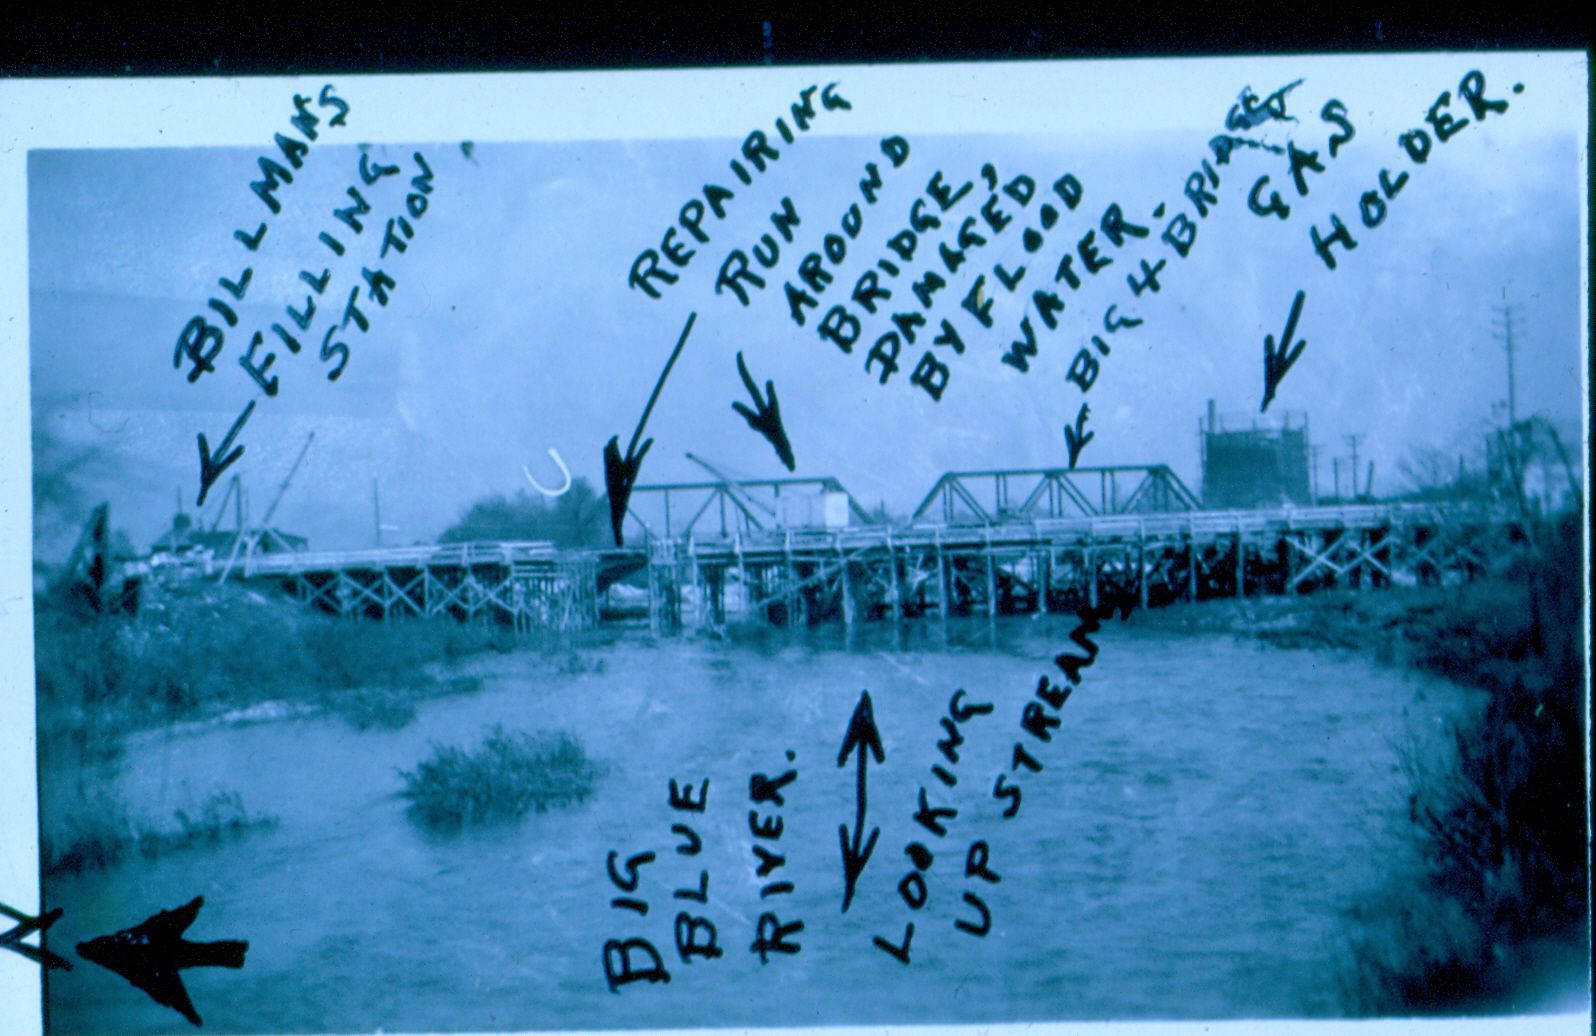 BILLMANS
FILLING
STATION
REPAIRING
RUN
AROUND
BRIDGE,
DAMAGED
BY FLOOD
WATER.
BIG 4 BRIDGE
GAS
HOLDER.
BIG
BLUE
RIVER.
LOOKING
UP STREAM
N